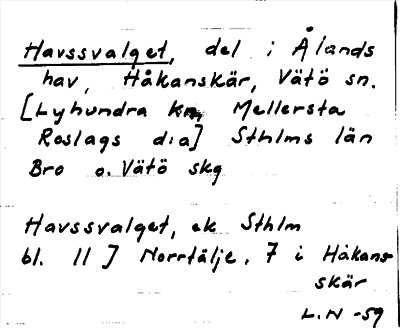 Havssvalget, del i Ålands
hav, Håkanskär, Vätö sn.
[Lyhundra kn, Mellersta
Roslags d:a] Sthlms län
Bro o. Vätö skg
Havssvalget, ek Sthlm
bl. II J Norrtälje, 7 i Håkans-
skär
L.N -59